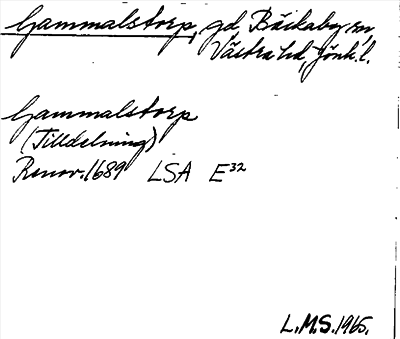 Gammalstorp, gd, Bäckaby sn,
Västra hd, Jönk. l.
Gammalstorp
(Tilldelning)
Renov. 1689 LSA E³²
L.M.S. 1965.